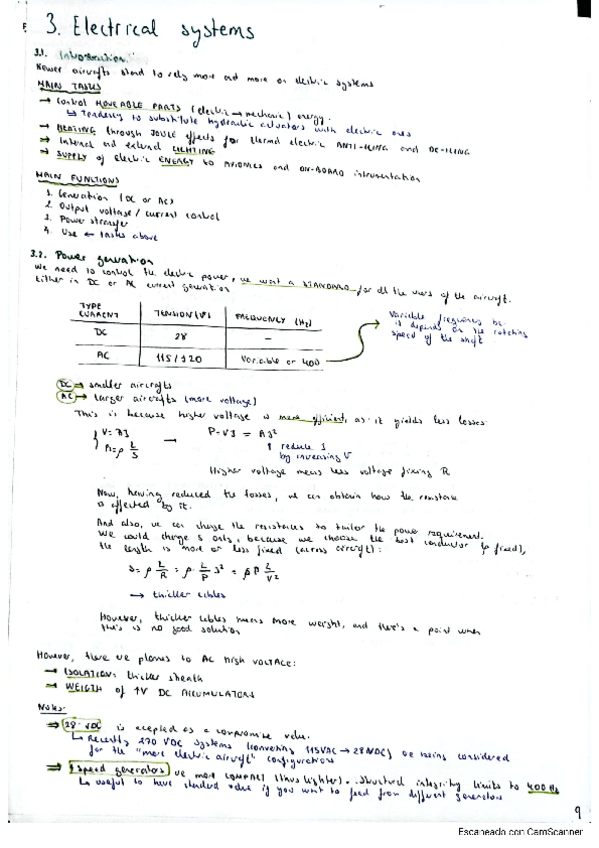 3. Electrical systems
3.1. Introduction
Newer aircrafts stand to rely more and more on electric systems
MAIN TASKS
→ Control MOVEABLE PARTS (electric → mechanic) energy.
↳ Tendency to substitute hydraulic actuators with electric ones
→ HEATING through JOULE effects for thermal electric ANTI-ICING and DE-ICING
→ Internal and external LIGHTING
→ SUPPLY of electric ENERGY to AVIONICS and ON-BOARD instrumentation
MAIN FUNCTIONS
1. Generation (DC or AC)
2. Output voltage / current control
3. Power transfer
4. Use ← tasks above
3.2. Power generation
We need to control the electric power, we want a STANDARD for all the users of the aircraft.
Either in DC or AC current generation
TYPE CURRENT | TENSION (V) | FREQUENCY (Hz)
DC | 28 | -
AC | 115/120 | Variable or 400
Variable frequency bc.
it depends on the rotating
speed of the shaft
DC → smaller aircrafts
AC → larger aircrafts (more voltage)
This is because higher voltage is more efficient, as it yields less losses:
V = RI → P = VI = RI²
R = ρ L/S
↑ reduce I
by increasing V
Higher voltage means less voltage fixing R
Now, having reduced the losses, we can obtain how the resistance
is affected by it.
And also, we can change the resistances to tailor the power requirement.
We could change S only, because we choose the best conductor (ρ fixed),
the length is more or less fixed (across aircraft):
S = ρ L/R = ρ L/P I² = ρ P L/V²
→ thicker cables
However, thicker cables means more weight, and there's a point when
this is no good solution
However, there are to AC HIGH VOLTAGE:
→ ISOLATION: thicker sheath
→ WEIGTH of ↑V DC ACCUMULATORS
Notes:
⇒ 28 VDC is acepted as a compromise value.
↳ Recently 270 VDC systems (converting 115VAC → 28VDC) are being considered
for the "more electric aircraft" configurations
⇒ ↑ speed generators are more compact (thus lighter). Structural integrity limits to 400 Hz
↳ useful to have standard value if you want to feed from different generators
9
Escaneado con CamScanner